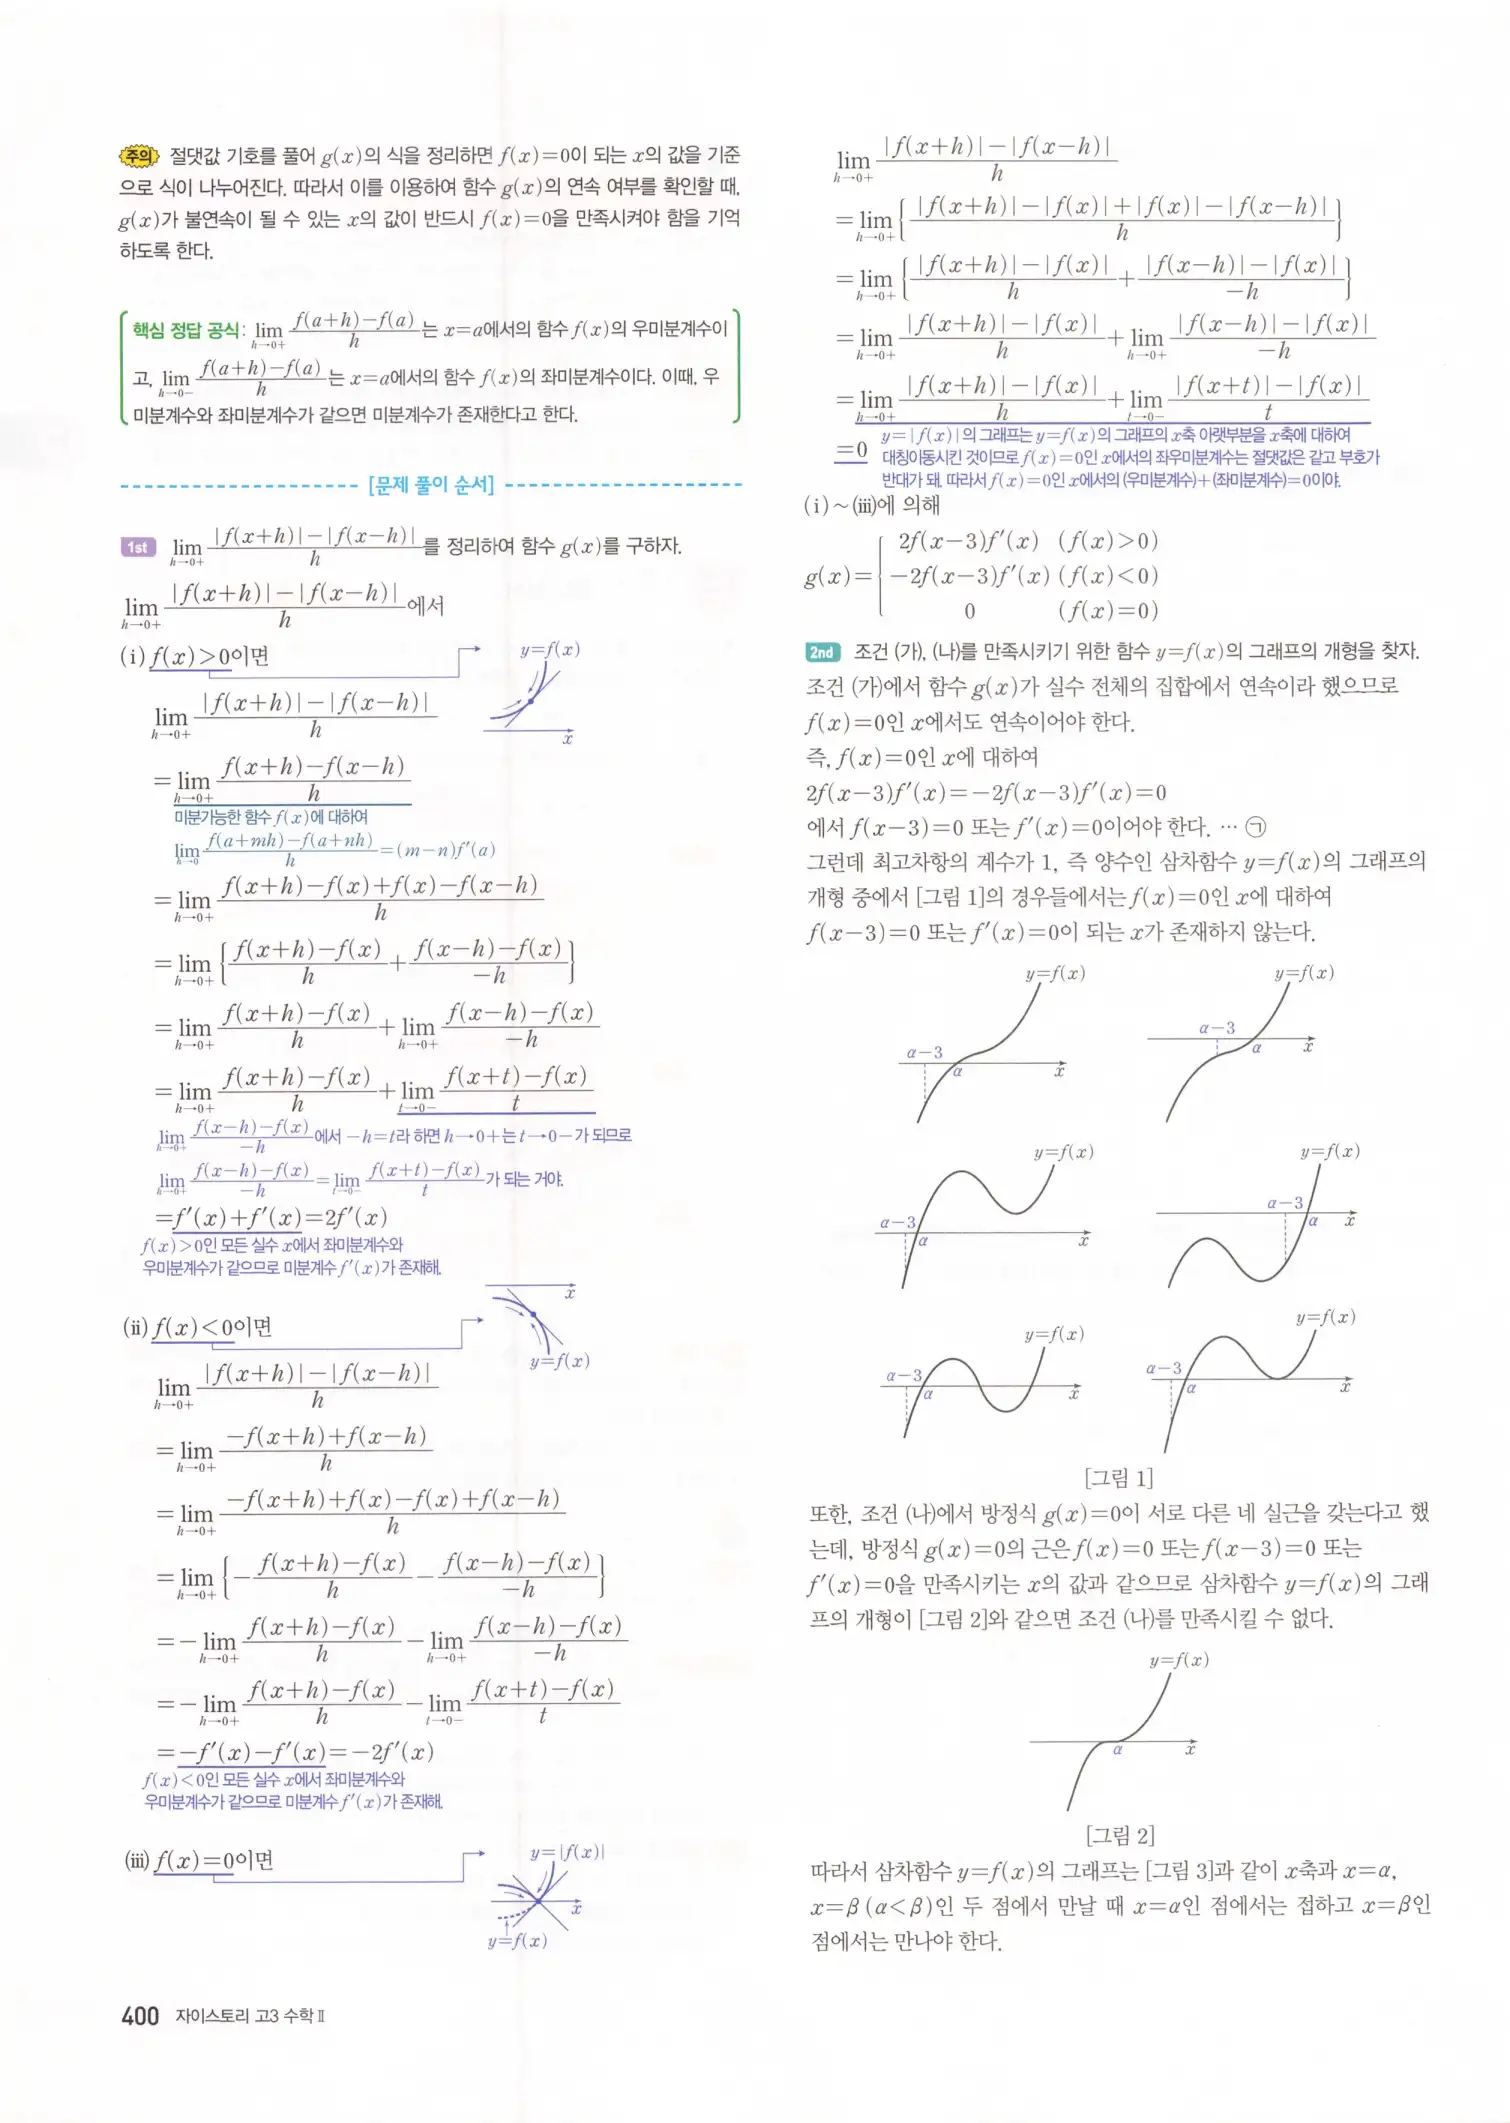 주의 절댓값 기호를 풀어 g(x)의 식을 정리하면 f(x)=0이 되는 x의 값을 기준
으로 식이 나누어진다. 따라서 이를 이용하여 함수 g(x)의 연속 여부를 확인할 때,
g(x)가 불연속이 될 수 있는 x의 값이 반드시 f(x)=0을 만족시켜야 함을 기억
하도록 한다.
핵심 정답 공식: lim_{h→0+} \frac{f(a+h)-f(a)}{h}는 x=a에서의 함수 f(x)의 우미분계수이
고, lim_{h→0-} \frac{f(a+h)-f(a)}{h}는 x=a에서의 함수 f(x)의 좌미분계수이다. 이때, 우
미분계수와 좌미분계수가 같으면 미분계수가 존재한다고 한다.
[문제 풀이 순서]
1st lim_{h→0+} \frac{|f(x+h)|-|f(x-h)|}{h}를 정리하여 함수 g(x)를 구하자.
lim_{h→0+} \frac{|f(x+h)|-|f(x-h)|}{h}에서
(i) f(x)>0이면
y=f(x)
x
lim_{h→0+} \frac{|f(x+h)|-|f(x-h)|}{h}
=lim_{h→0+} \frac{f(x+h)-f(x-h)}{h}
미분가능한 함수 f(x)에 대하여
lim_{h→0} \frac{f(a+mh)-f(a+nh)}{h}=(m-n)f'(a)
=lim_{h→0+} \frac{f(x+h)-f(x)+f(x)-f(x-h)}{h}
=lim_{h→0+} {\frac{f(x+h)-f(x)}{h}+\frac{f(x-h)-f(x)}{-h}}
=lim_{h→0+} \frac{f(x+h)-f(x)}{h}+lim_{h→0+} \frac{f(x-h)-f(x)}{-h}
=lim_{h→0+} \frac{f(x+h)-f(x)}{h}+lim_{t→0-} \frac{f(x+t)-f(x)}{t}
lim_{h→0+} \frac{f(x-h)-f(x)}{-h}에서 -h=t라 하면 h→0+는 t→0-가 되므로
lim_{h→0+} \frac{f(x-h)-f(x)}{-h}=lim_{t→0-} \frac{f(x+t)-f(x)}{t}가 되는 거야.
=f'(x)+f'(x)=2f'(x)
f(x)>0인 모든 실수 x에서 좌미분계수와
우미분계수가 같으므로 미분계수 f'(x)가 존재해.
(ii) f(x)<0이면
x
y=f(x)
lim_{h→0+} \frac{|f(x+h)|-|f(x-h)|}{h}
=lim_{h→0+} \frac{-f(x+h)+f(x-h)}{h}
=lim_{h→0+} \frac{-f(x+h)+f(x)-f(x)+f(x-h)}{h}
=lim_{h→0+} {-\frac{f(x+h)-f(x)}{h}-\frac{f(x-h)-f(x)}{-h}}
=-lim_{h→0+} \frac{f(x+h)-f(x)}{h}-lim_{h→0+} \frac{f(x-h)-f(x)}{-h}
=-lim_{h→0+} \frac{f(x+h)-f(x)}{h}-lim_{t→0-} \frac{f(x+t)-f(x)}{t}
=-f'(x)-f'(x)=-2f'(x)
f(x)<0인 모든 실수 x에서 좌미분계수와
우미분계수가 같으므로 미분계수 f'(x)가 존재해.
(iii) f(x)=0이면
y=|f(x)|
x
y=f(x)
lim_{h→0+} \frac{|f(x+h)|-|f(x-h)|}{h}
=lim_{h→0+} {\frac{|f(x+h)|-|f(x)|+|f(x)|-|f(x-h)|}{h}}
=lim_{h→0+} {\frac{|f(x+h)|-|f(x)|}{h}+\frac{|f(x-h)|-|f(x)|}{-h}}
=lim_{h→0+} \frac{|f(x+h)|-|f(x)|}{h}+lim_{h→0+} \frac{|f(x-h)|-|f(x)|}{-h}
=lim_{h→0+} \frac{|f(x+h)|-|f(x)|}{h}+lim_{t→0-} \frac{|f(x+t)|-|f(x)|}{t}
=0
y=|f(x)|의 그래프는 y=f(x)의 그래프의 x축 아랫부분을 x축에 대하여
대칭이동시킨 것이므로 f(x)=0인 x에서의 좌우미분계수는 절댓값은 같고 부호가
반대가 돼. 따라서 f(x)=0인 x에서의 (우미분계수)+(좌미분계수)=0이야.
(i)~(iii)에 의해
g(x)={
2f(x-3)f'(x) (f(x)>0)
-2f(x-3)f'(x) (f(x)<0)
0 (f(x)=0)
2nd 조건 (가), (나)를 만족시키기 위한 함수 y=f(x)의 그래프의 개형을 찾자.
조건 (가)에서 함수 g(x)가 실수 전체의 집합에서 연속이라 했으므로
f(x)=0인 x에서도 연속이어야 한다.
즉, f(x)=0인 x에 대하여
2f(x-3)f'(x)=-2f(x-3)f'(x)=0
에서 f(x-3)=0 또는 f'(x)=0이어야 한다. … ㉠
그런데 최고차항의 계수가 1, 즉 양수인 삼차함수 y=f(x)의 그래프의
개형 중에서 [그림 1]의 경우들에서는 f(x)=0인 x에 대하여
f(x-3)=0 또는 f'(x)=0이 되는 x가 존재하지 않는다.
y=f(x)
α-3
α
x
y=f(x)
α-3
α
x
y=f(x)
α-3
α
x
y=f(x)
α-3
α
x
y=f(x)
α-3
α
x
y=f(x)
α-3
α
x
[그림 1]
또한, 조건 (나)에서 방정식 g(x)=0이 서로 다른 네 실근을 갖는다고 했
는데, 방정식 g(x)=0의 근은 f(x)=0 또는 f(x-3)=0 또는
f'(x)=0을 만족시키는 x의 값과 같으므로 삼차함수 y=f(x)의 그래
프의 개형이 [그림 2]와 같으면 조건 (나)를 만족시킬 수 없다.
y=f(x)
α
x
[그림 2]
따라서 삼차함수 y=f(x)의 그래프는 [그림 3]과 같이 x축과 x=α,
x=β (α<β)인 두 점에서 만날 때 x=α인 점에서는 접하고 x=β인
점에서는 만나야 한다.
400 자이스토리 고3 수학Ⅱ